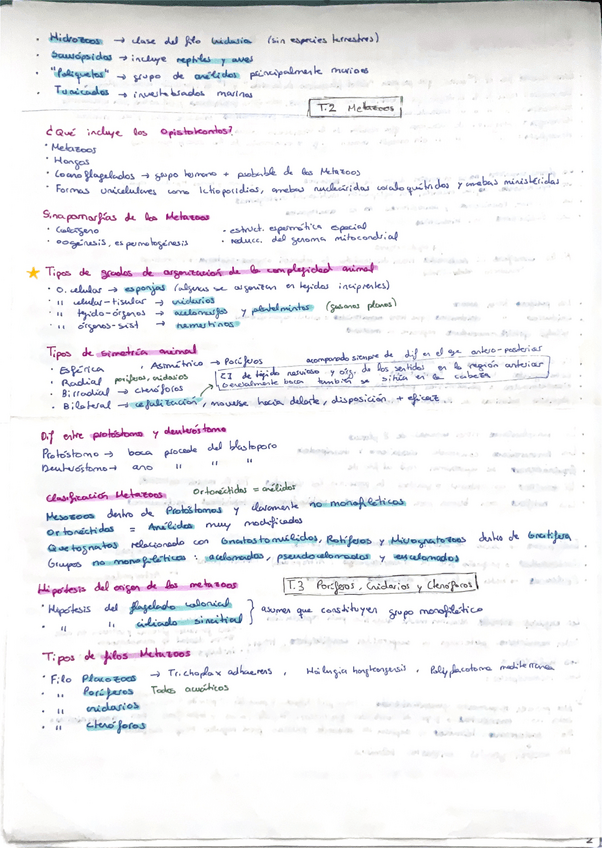 · Hidrozoos → clase del filo Cnidaria (sin especies terrestres)
· Saurópsidos → incluye reptiles y aves
· "Poliquetos" → grupo de anélidos principalmente marinos
· Tunicados → invertebrados marinos
T.2 Metazoos
¿Qué incluye los Opistokontos?
· Metazoos
· Hongos
· Coanoflagelados → grupo hermano + probable de los Metazoos
· Formas unicelulares como Ictiosporidios, amebas nucleáridas coralloquítridos y amebas ministéridas
Sinapomorfías de los Metazoos
· Colágeno · estruct. espermática especial
· oogénesis, espermatogénesis · reducc. del genoma mitocondrial
Tipos de grados de organización de la complejidad animal
· O. celular → esponjas (algunas se organizan en tejidos incipientes)
· " celular-tisular → cnidarios
· " tejido-órganos → acelomorfos y platelmintos (gusanos planos)
· " órganos-sist → nemertinos
Tipos de simetría animal
· Esférica · Asimétrico → Poríferos acompañado siempre de dif en el eje antero-posterior
· Radial poríferos, cnidarios CI de tejido nervioso y org. de los sentidos en la región anterior
· Birradial → ctenóforos Generalmente boca también se sitúa en la cabeza
· Bilateral → cefalización, moverse hacia delante, disposición + eficaz...
Dif entre protóstomo y deuteróstomo
Protóstomo → boca procede del blastoporo
Deuteróstomo → ano " " "
Clasificación Metazoos Ortonéctidos = anélidos
Mesozoos dentro de Protóstomos y claramente no monofiléticos
Ortonéctidos = Anélidos muy modificados
Quetognatos relacionado con Gnatostomúlidos, Rotíferos y Micrognatozoos dentro de Gnatifera
Grupos no monofiléticos: acelomados, pseudocelomados y eucelomados
Hipótesis del origen de los metazoos T.3 Poríferos, Cnidarios y Ctenóforos
· Hipótesis del flagelado colonial } asumen que constituyen grupo monofilético
· " " ciliado sincitial
Tipos de filos Metazoos
· Filo Placozoos → Trichoplax adhaerens, Hoilungia hongkongensis, Polyplacotoma mediterranea
· " Poríferos Todos acuáticos
· " cnidarios
· " ctenóforos
2